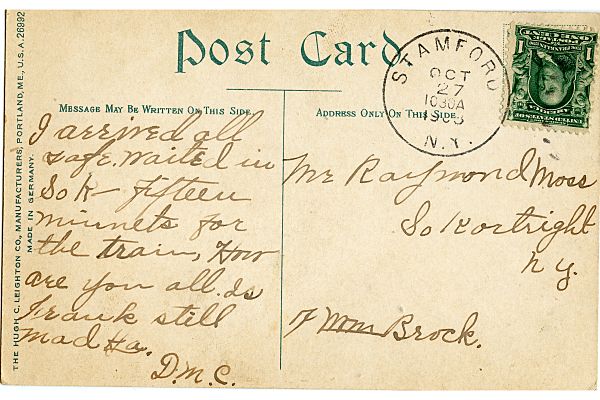 Post Card
MESSAGE MAY BE WRITTEN ON THIS SIDE
ADDRESS ONLY ON THIS SIDE.
THE HUGH C. LEIGHTON CO., MANUFACTURERS, PORTLAND, ME., U.S.A. 26992
MADE IN GERMANY.
STAMFORD
OCT
27
1030A
N.Y.
I arrived all
safe, waited in
So K- fifteen
minnets for
the train, How
are you all. Is
Frank still
mad Ha.
D.M.C.
Mr Raymond Moss
So Kortright
N.Y.
Brock.